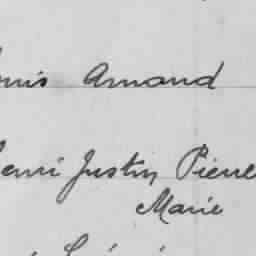 ouis Amand
enri Justin Pierre
Marie